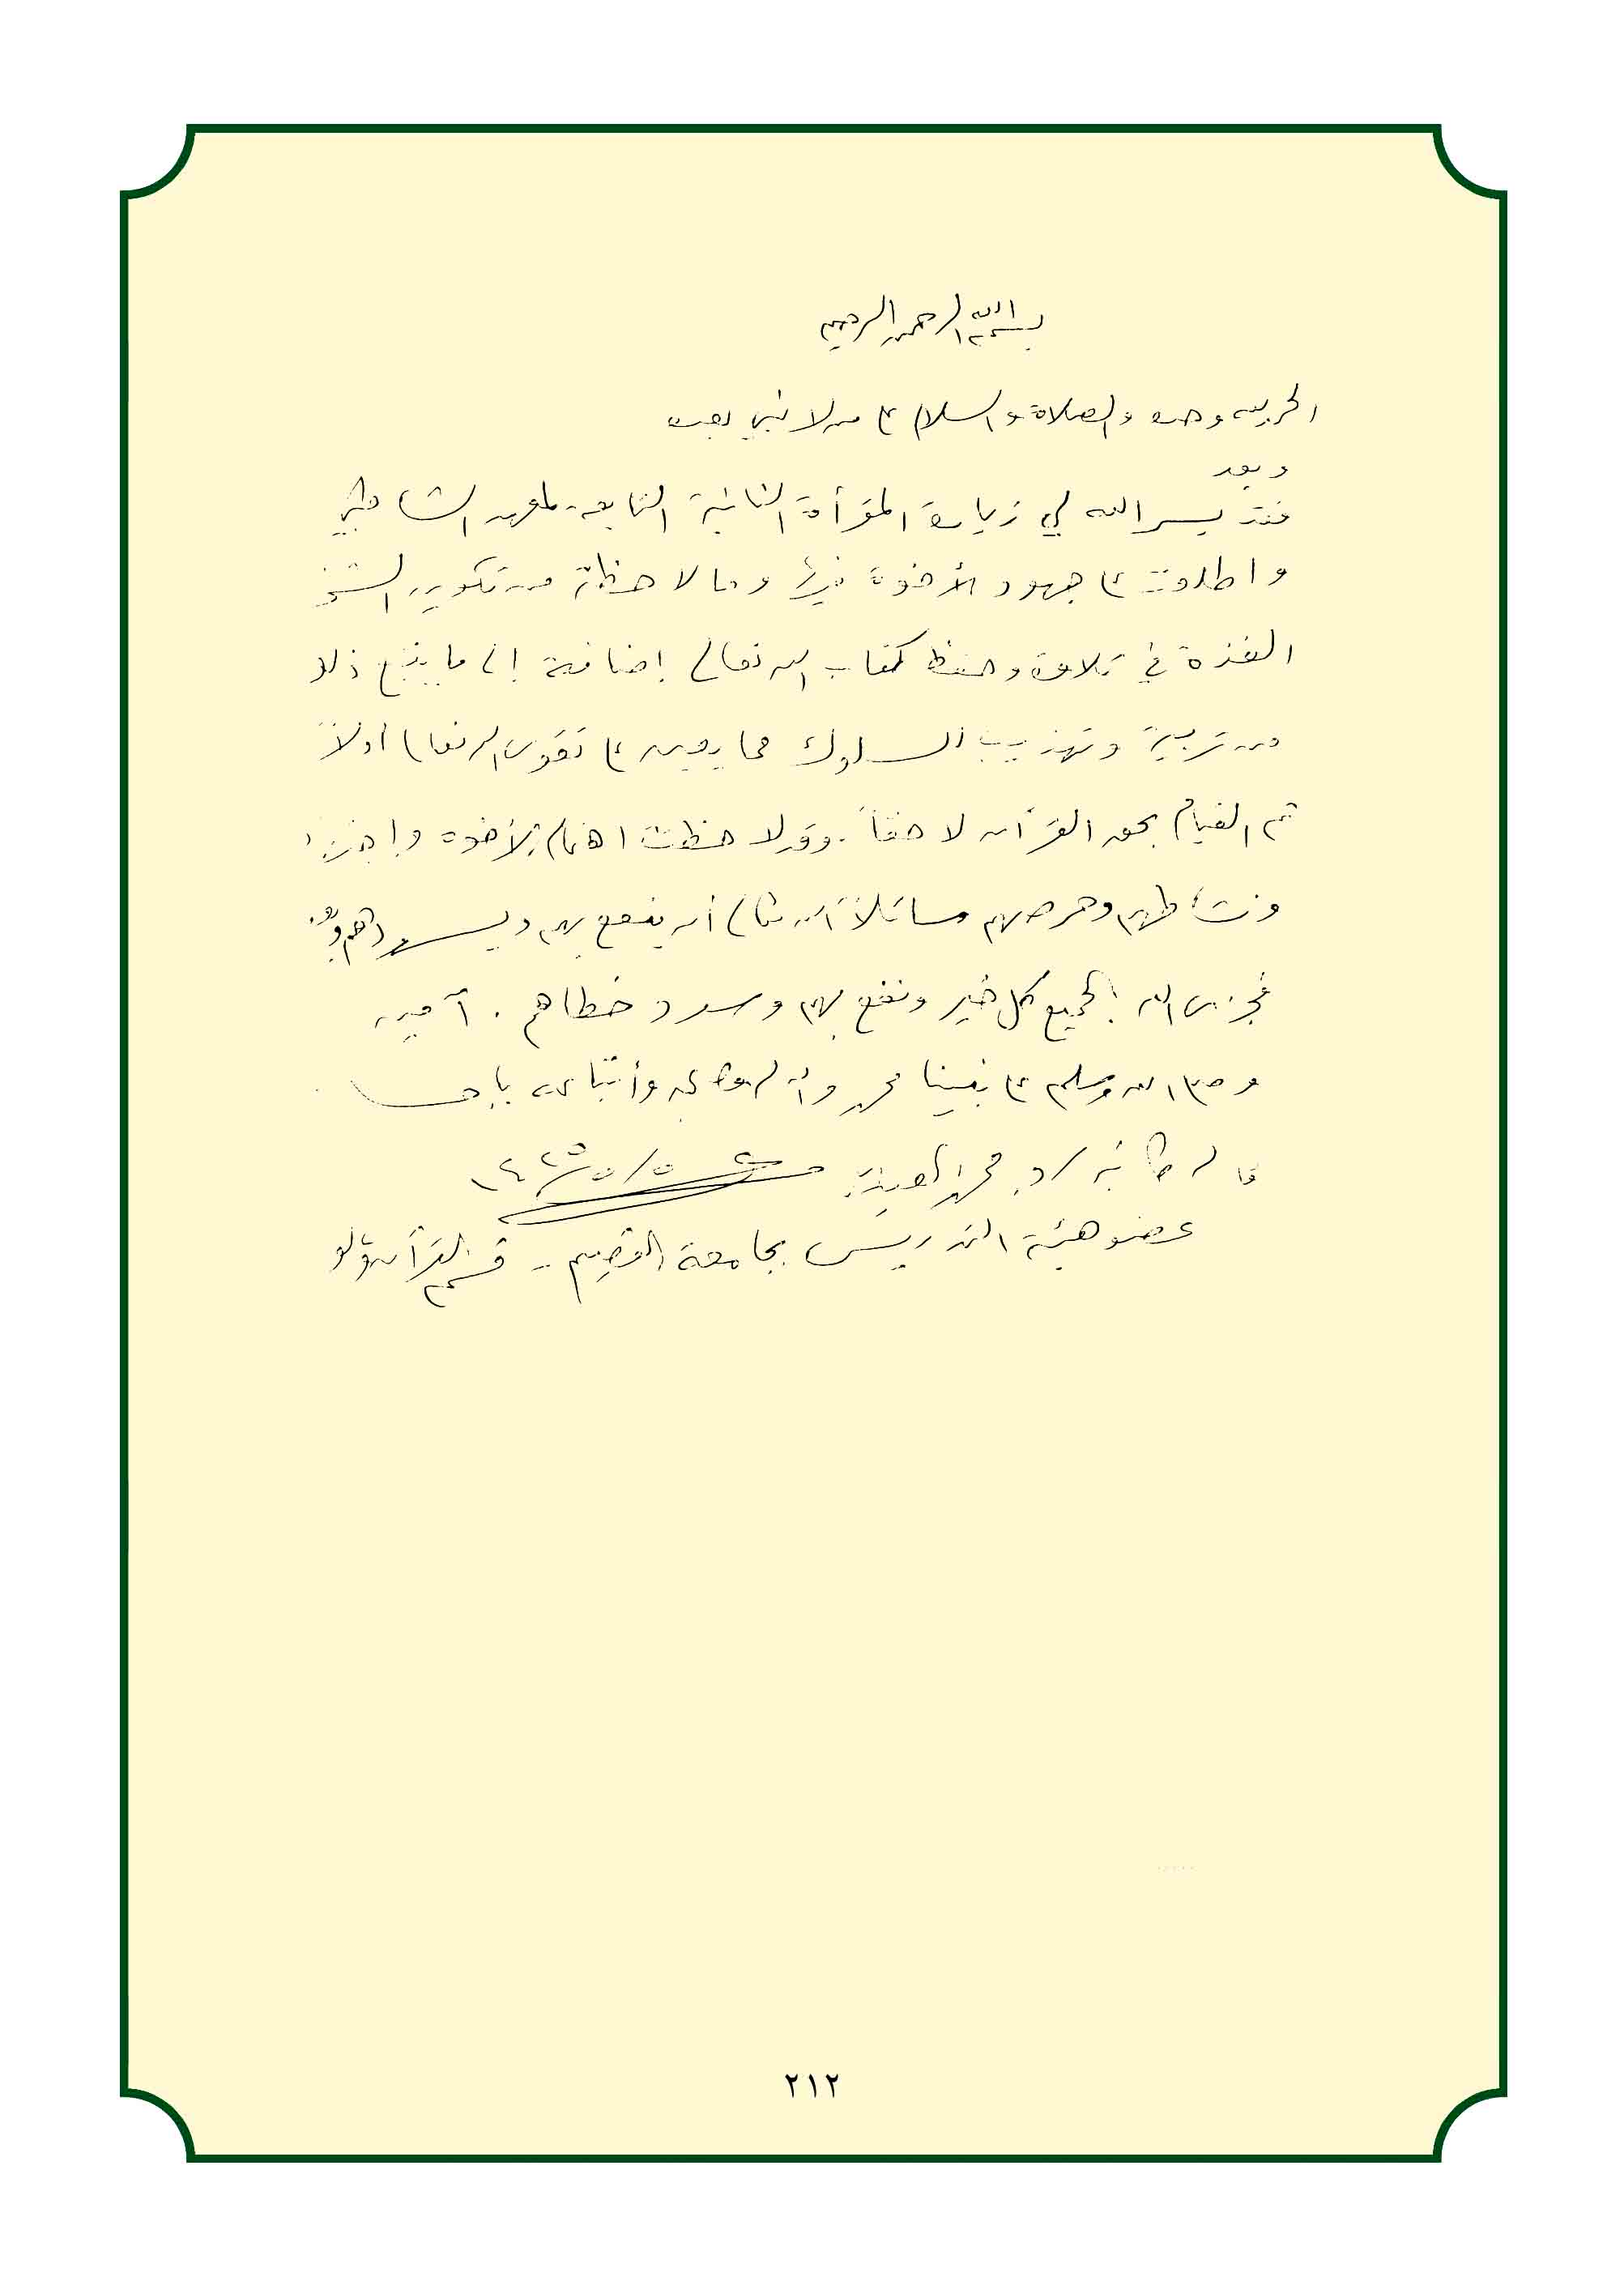 بسم الله الرحمن الرحيم
الحمد لله وحده والصلاة والسلام على من لا نبي بعده
وبعد
فقد يسر الله لي زيارة المقرأة الثانية التابعة لمعهد الشاطبي
واطلعت على جهود الأخوة فيها وما لاحظته من تكوين
الفذة في تلاوة وحفظ كتاب الله تعالى إضافة إلى ما يتبع ذلك
من تربية وتهذيب السلوك مما يعين على تقوى الله تعالى أولاً
ثم القيام بحق القرآن لاحقاً. وقد لاحظت اهتمام الأخوة
ونشاطهم وحرصهم سائلاً الله تعالى أن ينفع بهم
فجزى الله الجميع كل خير ونفع بهم وسدد خطاهم. آمين
وصلى الله وسلم على نبينا محمد وآله وصحبه وأتباعه بإحسان
قاله كاتبه / د. محمد ١٤٢٥/٥/٢
عضو هيئة التدريس بجامعة القصيم - قسم القرآن
٢١٢